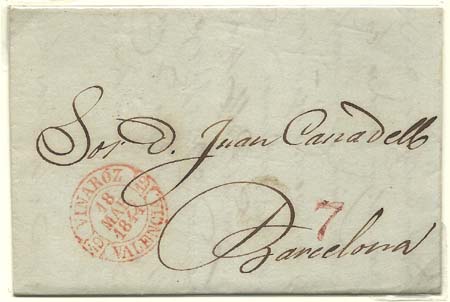 Sor. D. Juan Canadell
VINARÓZ
18
MAY
1844
VALENCIA
7
Barcelona